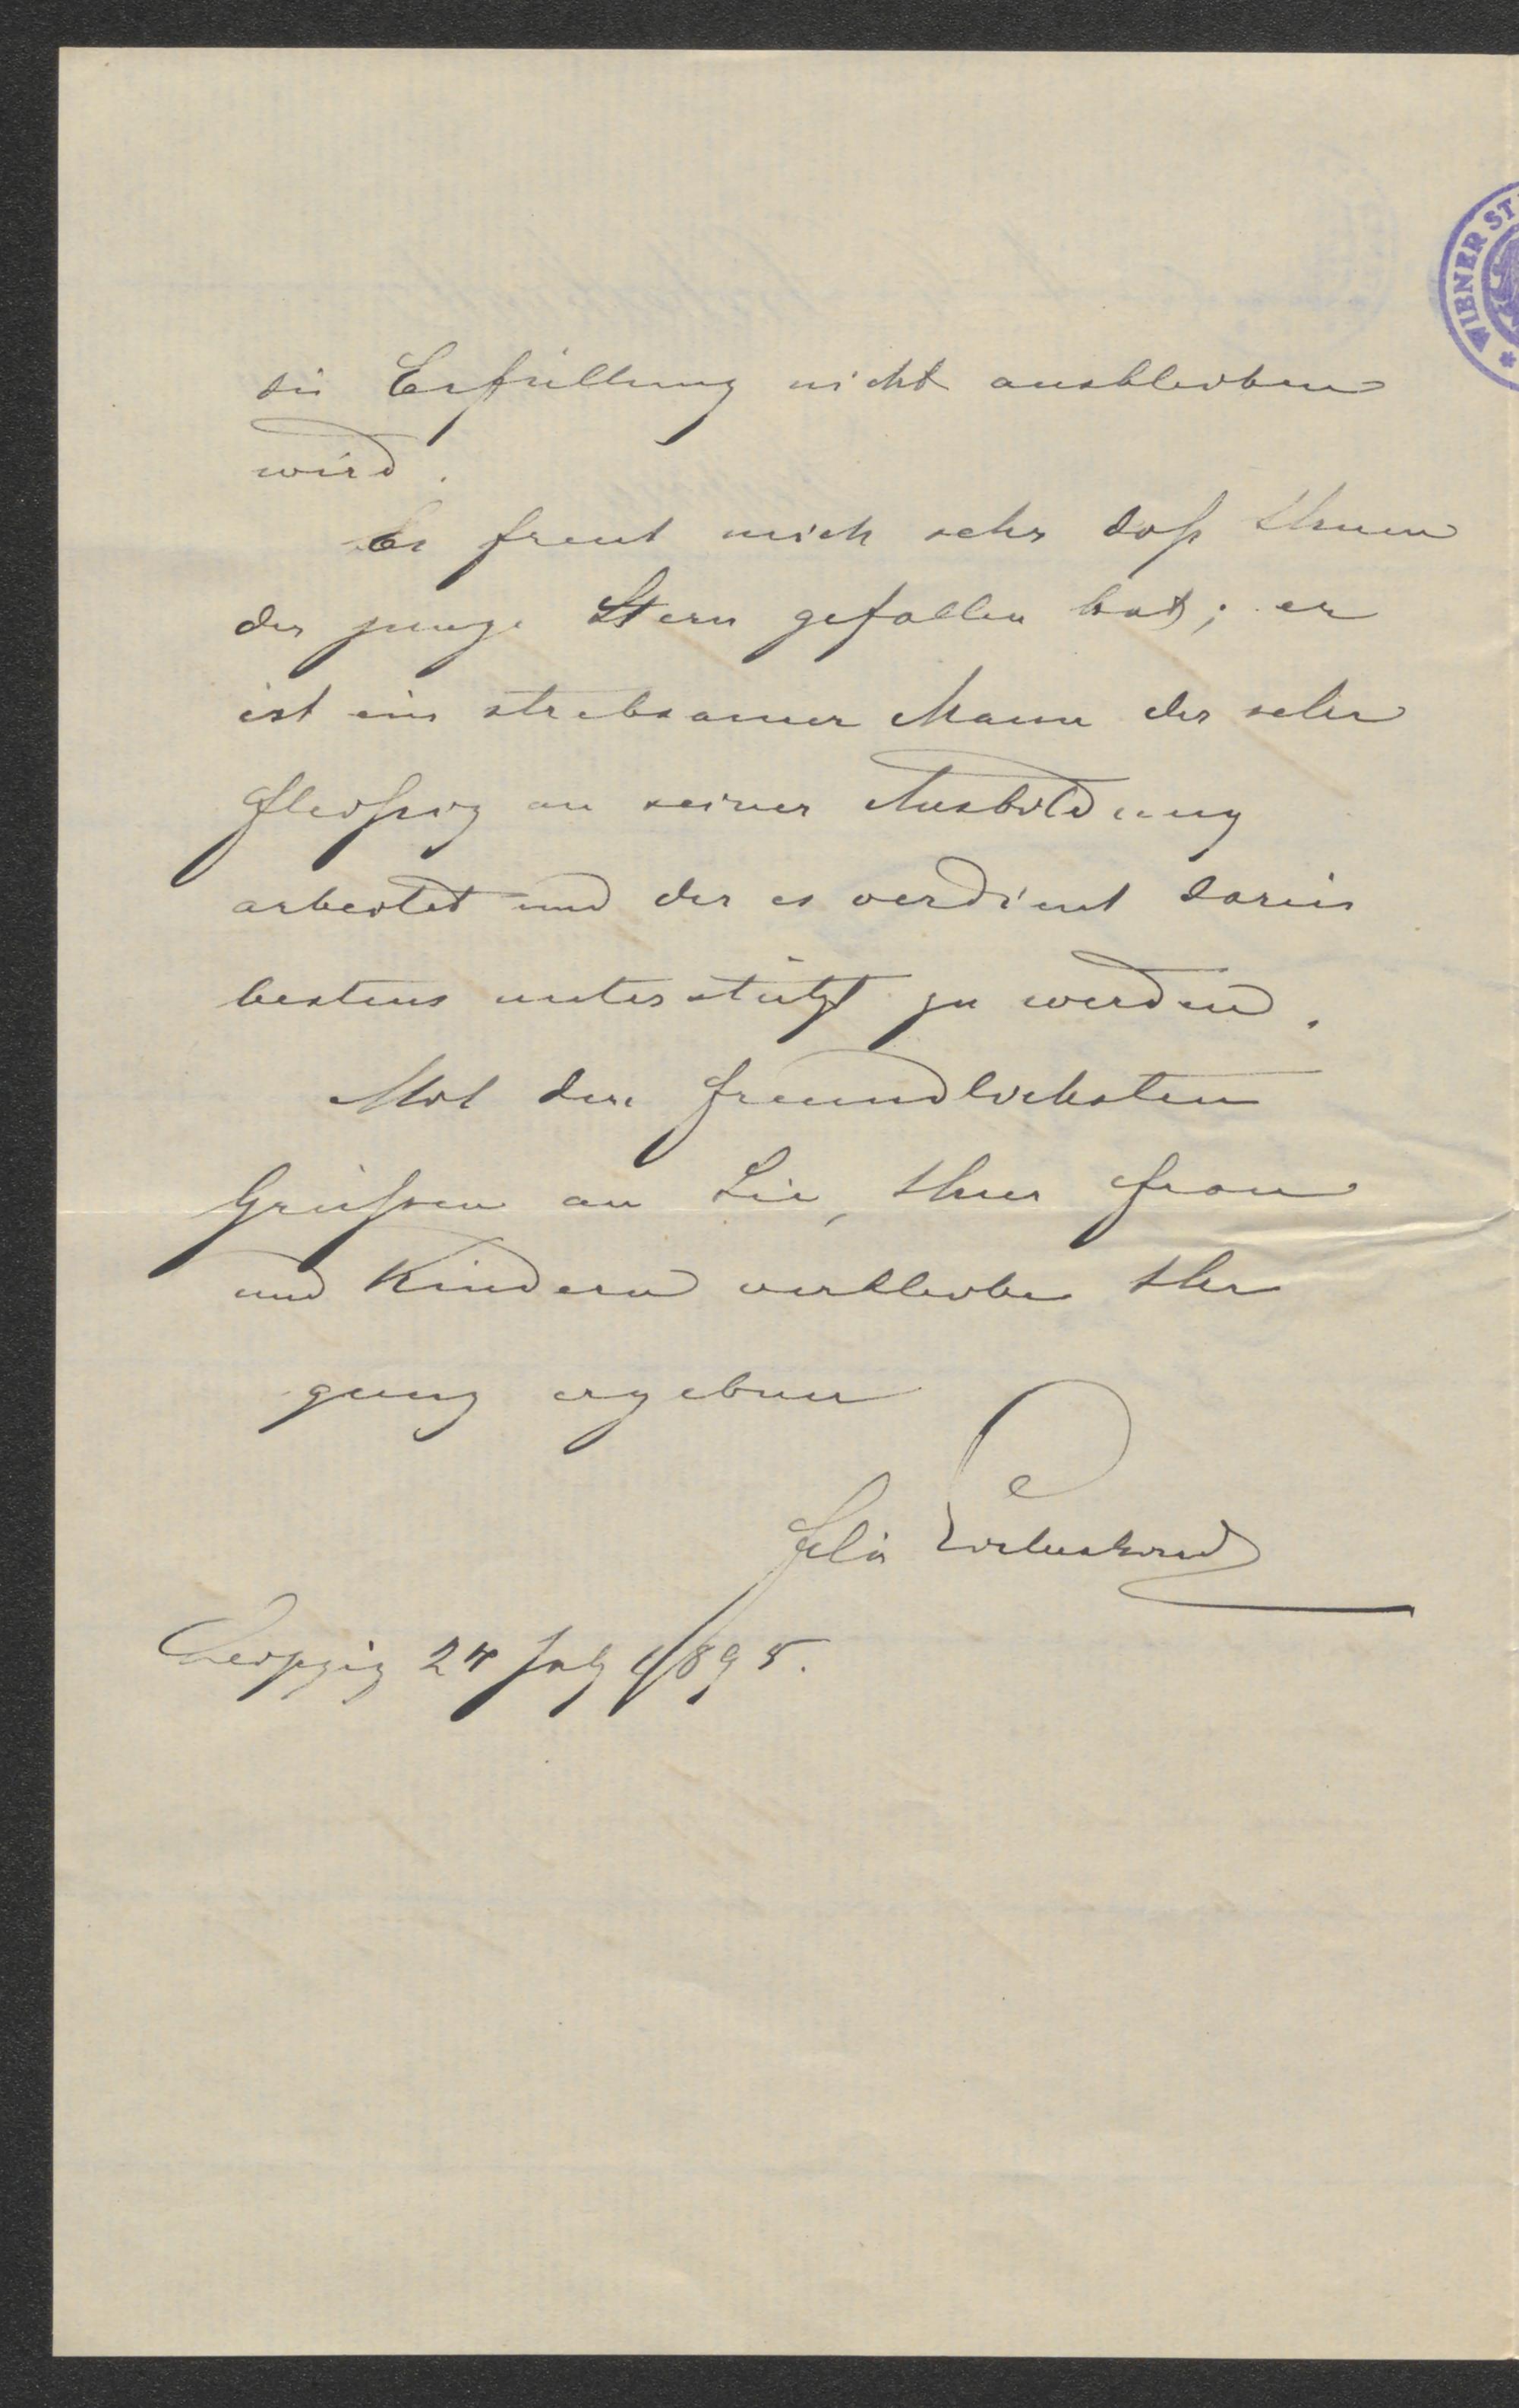 die Erfüllung nicht ausbleiben
wird.
Es freut mich sehr daß Ihnen
der junge Stern gefallen hat; er
ist ein strebsamer Mann der sehr
fleißig an seiner Ausbildung
arbeitet und der es verdient darin
bestens unterstützt zu werden.
Mit den freundlichsten
Grüßen an Sie, Ihrer Frau
und Kindern verbleibe Ihr
ganz ergebner
Leipzig 24 July 1895.
WIENER ST